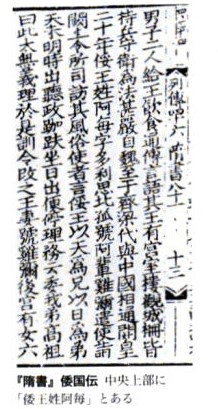 列傳四十六 隋書八十一 十三
男子二人給王飲食通傳言語其王有宮室樓觀城柵皆
持兵守衛為法甚嚴自魏至于齊梁代與中國相通開皇
二十年俀王姓阿每字多利思比孤號阿輩雞彌遣使詣
闕上令所司訪其風俗使者言俀王以天為兄以日為弟
天未明時出聽政跏趺坐日出便停理務云委我弟高祖
曰此太無義理於是訓令改之王妻號雞彌後宮有女六
『隋書』倭国伝 中央上部に
「倭王姓阿毎」とある